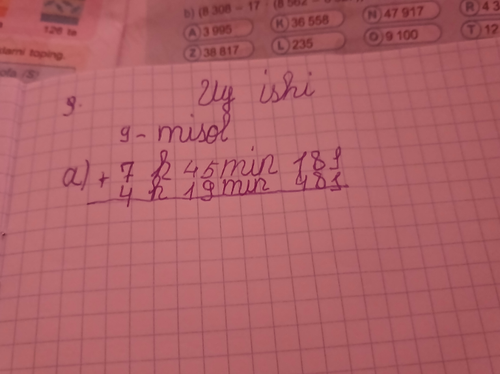 b) (8 308 - 17
A 3 995
K 36 558
N 47 917
R 4 3
Z 38 817
L 235
O 9 100
T 12
126 ta
toping.
9.
Uy ishi
9-misol
a) + 7 h 45 min 18 s
4 h 19 min 48 s